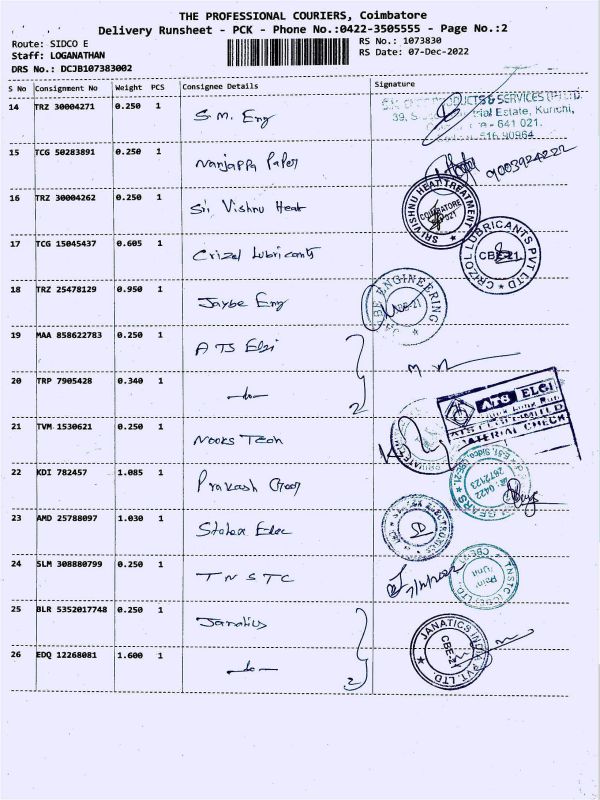 THE PROFESSIONAL COURIERS, Coimbatore
Delivery Runsheet - PCK - Phone No.:0422-3505555 - Page No.:2
Route: SIDCO E
RS No.: 1073830
Staff: LOGANATHAN
RS Date: 07-Dec-2022
DRS No.: DCJB107383002
S No Consignment No Weight PCS Consignee Details Signature
14 TRZ 30004271 0.250 1 S.M. Eng
PRODUCTS & SERVICES (P) LTD.
39, trial Estate, Kurichi,
- 641 021.
516 90964
15 TCG 50283891 0.250 1 Nanjappa Paper 9003924222
16 TRZ 30004262 0.250 1 Sri Vishnu Heat
SRI VISHNU HEAT TREATMENT
COIMBATORE
17 TCG 15045437 0.605 1 Crizol Lubricants
CRIZOL LUBRICANTS PVT LTD
CBE-21
18 TRZ 25478129 0.950 1 Jaybe Eng
BE ENGINEERING
19 MAA 858622783 0.250 1 ATS Elgi
20 TRP 7905428 0.340 1 -do- 2
ATS ELGI
ATS ELGI LIMITED
MATERIAL CHECK
21 TVM 1530621 0.250 1 Nooks Tech
22 KDI 782457 1.085 1 Prakash Gear
GEARS
0422
2672123
23 AMD 25788097 1.030 1 Statex Elec
ELECTRONICS
24 SLM 308880799 0.250 1 TNSTC
TNSTC (CBE) LTD
Unit
25 BLR 5352017748 0.250 1 Janatics
26 EDQ 12268081 1.600 1 -do- 2
JANATICS INDIA PVT. LTD.
CBE-21